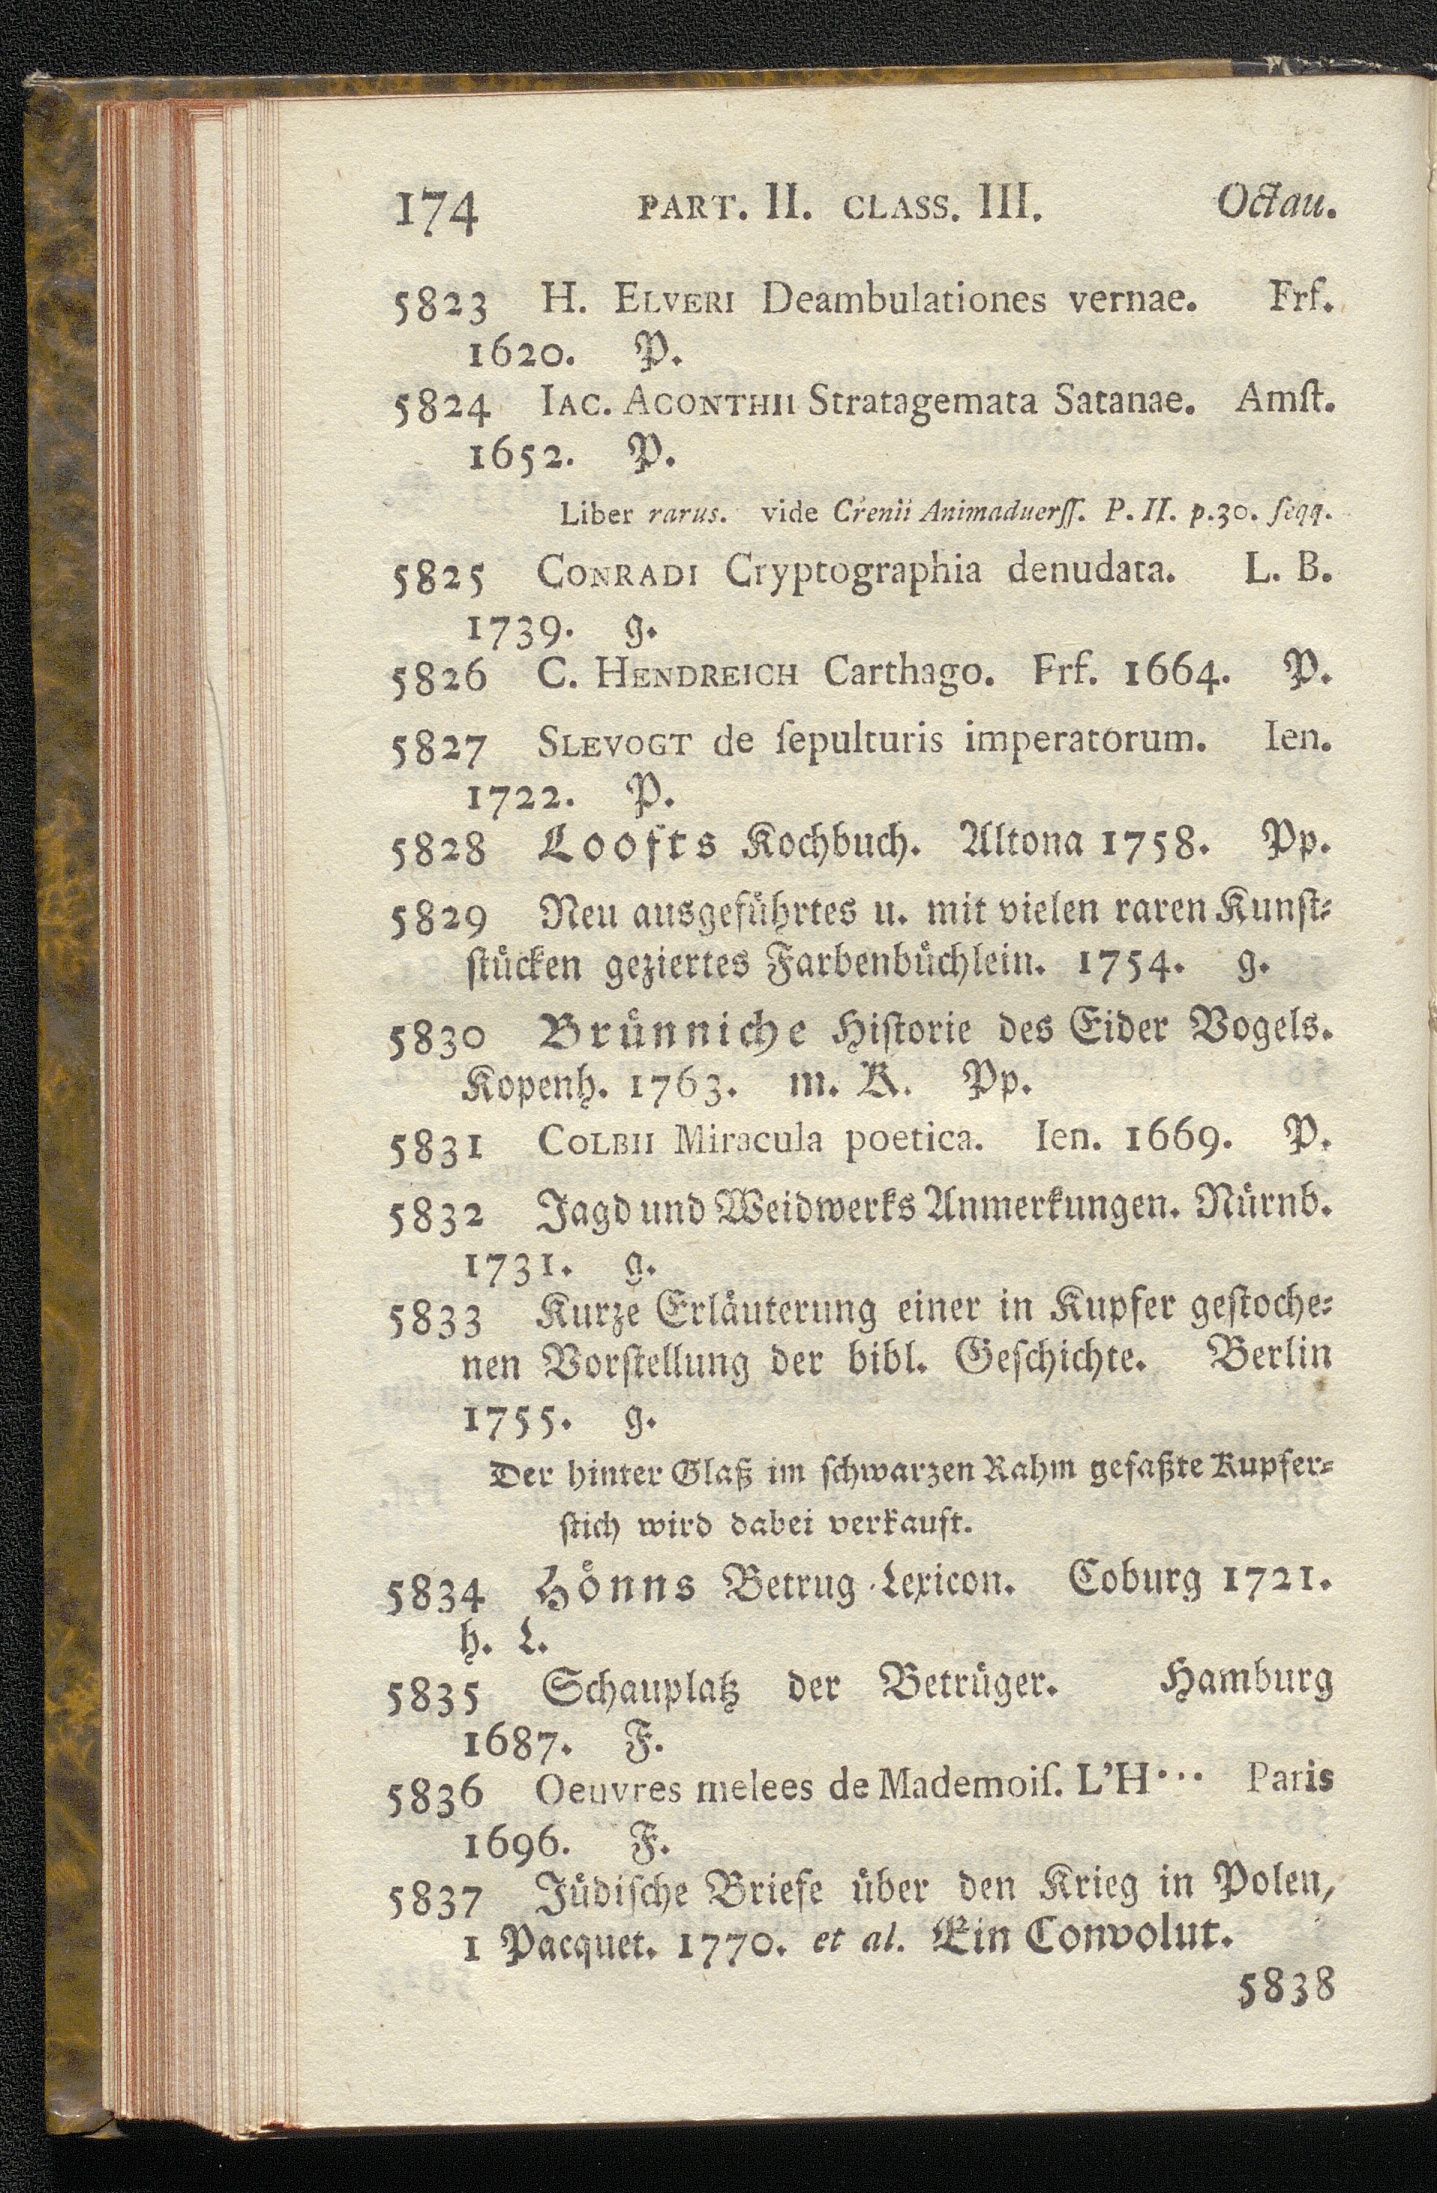 174 PART. II. CLASS. III. Octau.
5823 H. ELVERI Deambulationes vernae. Frf.
1620. P.
5824 IAC. ACONTHII Stratagemata Satanae. Amſt.
1652. P.
Liber rarus. vide Crenii Animaduerſſ. P. II. p.30. ſeqq.
5825 CONRADI Cryptographia denudata. L. B.
1739. g.
5826 C. HENDREICH Carthago. Frf. 1664. P.
5827 SLEVOGT de ſepulturis imperatorum. Ien.
1722. P.
5828 Loofts Kochbuch. Altona 1758. Pp.
5829 Neu ausgefuͤhrtes u. mit vielen raren Kunſt-
ſtuͤcken geziertes Farbenbuͤchlein. 1754. g.
5830 Bruͤnniche Hiſtorie des Eider Vogels.
Kopenh. 1763. m. K. Pp.
5831 COLBII Miracula poetica. Ien. 1669. P.
5832 Jagd und Weidwerks Anmerkungen. Nuͤrnb.
1731. g.
5833 Kurze Erlaͤuterung einer in Kupfer geſtoche-
nen Vorſtellung der bibl. Geſchichte. Berlin
1755. g.
Der hinter Glaß im ſchwarzen Rahm gefaßte Kupfer-
ſtich wird dabei verkauft.
5834 Hoͤnns Betrug-Lexicon. Coburg 1721.
h. L.
5835 Schauplatz der Betruͤger. Hamburg
1687. F.
5836 Oeuvres melees de Mademoiſ. L'H··· Paris
1696. F.
5837 Juͤdiſche Briefe uͤber den Krieg in Polen,
1 Pacquet. 1770. et al. Ein Convolut.
5838